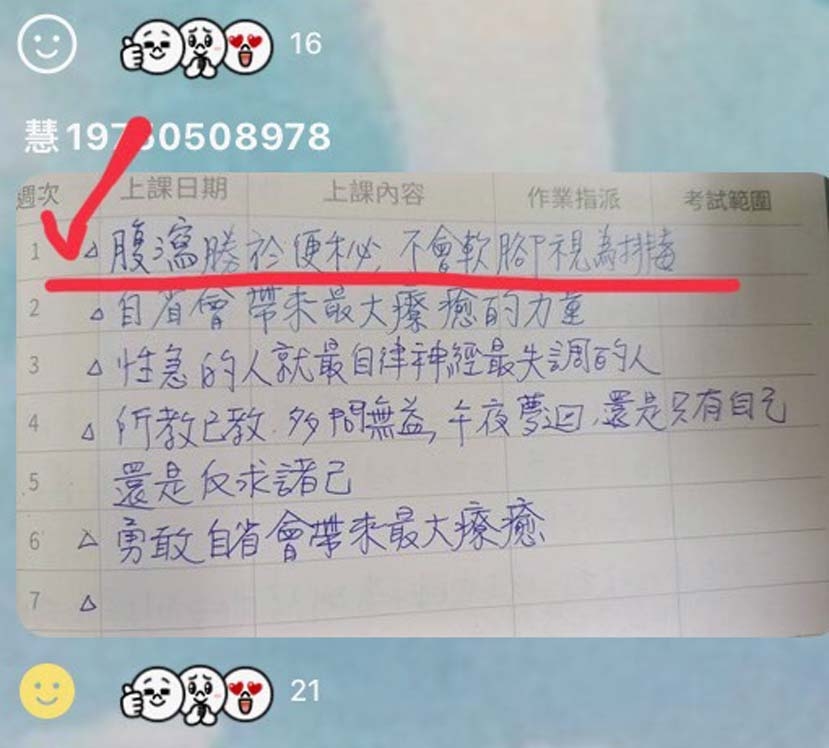 16
慧19760508978
週次 上課日期 上課內容 作業指派 考試範圍
1 △ 腹瀉勝於便秘，不會軟腳視為排毒
2 △ 自省會帶來最大療癒的力量
3 △ 性急的人就最自律神經最失調的人
4 △ 所教已教，多問無益，午夜夢迴，還是只有自己
5 還是反求諸己
6 △ 勇敢自省會帶來最大療癒
7 △
21